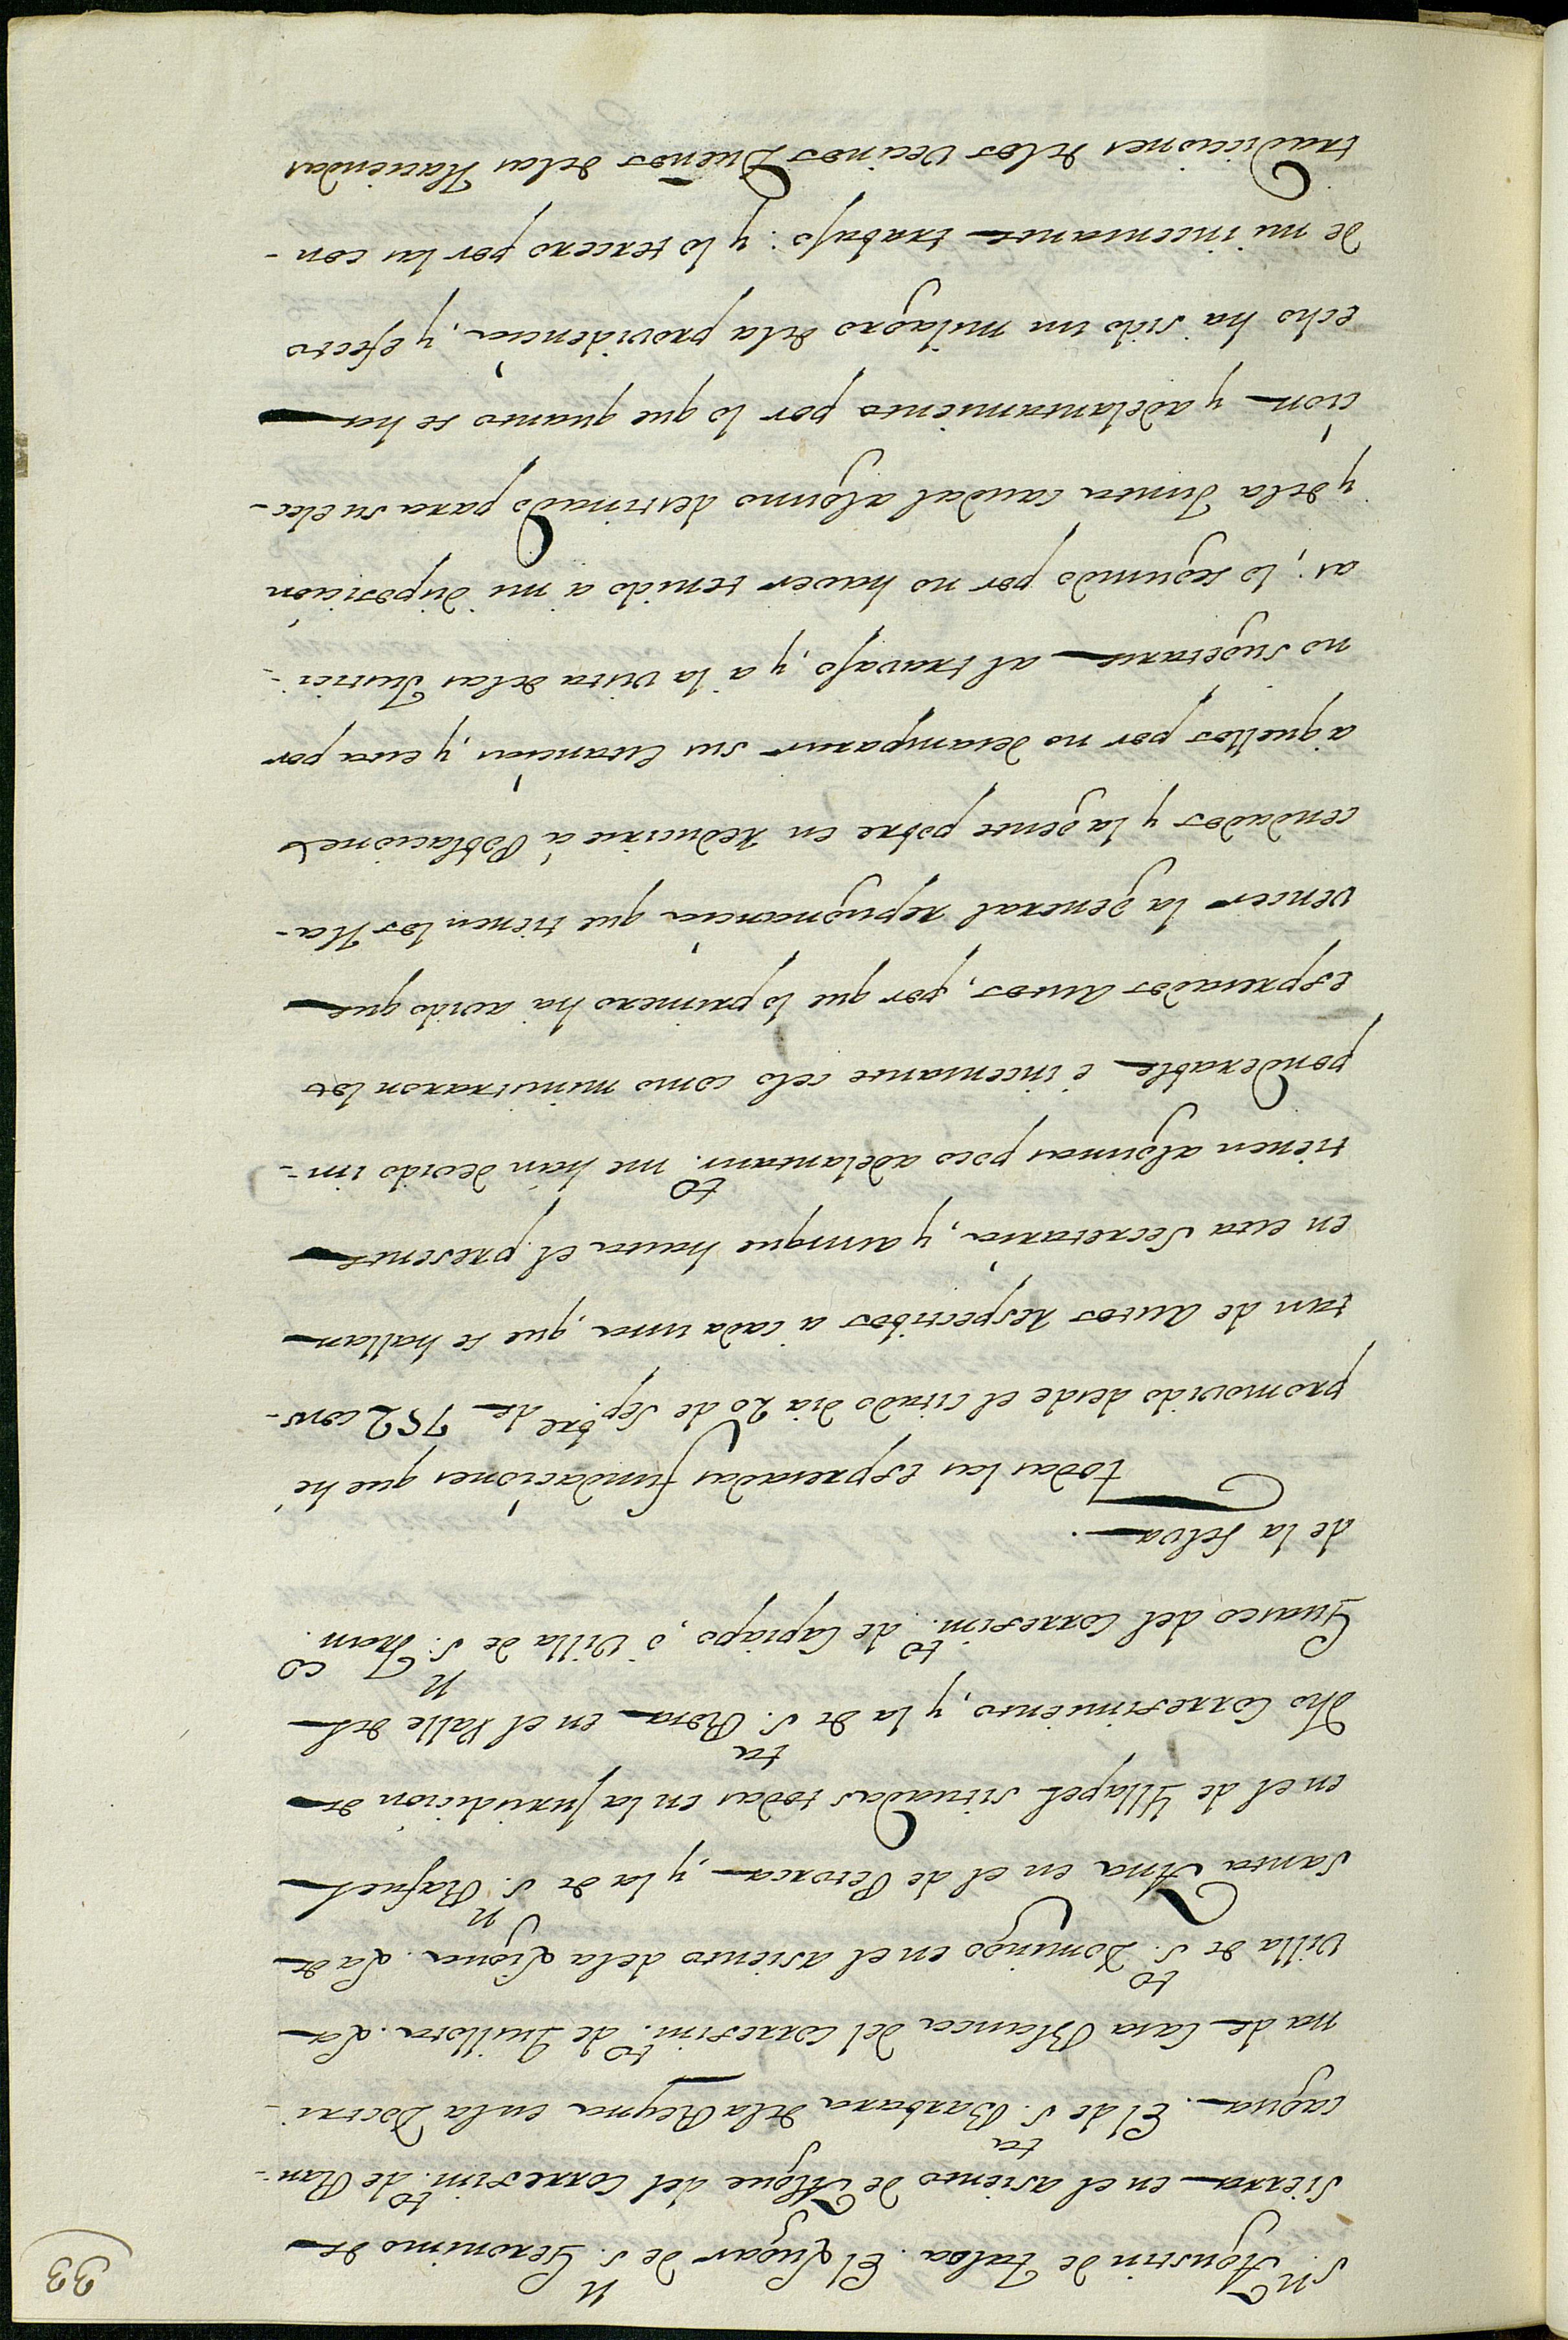 33
S.ⁿ Agustin de Talca. El Lugar de S.ⁿ Geronimo de
Sierra en el asiento de Alque del Correxim.to de Ran-
cagua. El de S.ta Barbara dela Reyna enla Doctri-
na de Casa Blanca del Correxim.to de Quillota. La
Villa de S.to Domingo en el asiento dela Ligua. La de
Santa Ana en el de Petorca y la de S.ⁿ Rafael
en el de Yllapel situadas todas en la Jurisdicion de
dho Correximiento, y la de S.ta Rosa en el Valle del
Guasco del Correxim.to de Copiapo, ó Villa de S.ⁿ Fran.co
de la Selva.
todas las espresadas fundaciónes que hé
promovido desde el citado dia 20 de Sep.bre de 752 cons-
tan de Autos respectibos a cada una, que se hallan
en esta Secretaria, y aunque hasta el presente
tienen algunas poco adelantam.to me han devido im-
ponderable é incesante celo como ministraron los
espresados Autos, por que lo primero ha avido que
vencer la general repugnancia que tienen los Ha-
cendados y la gente pobre en reducirse á Poblaciones
aquellos por no desamparar sus Estancias, y esta por
no sugetarse al travajo, y á la vista delas Justici-
as; lo segundo por no haver tenido á mi disposición
y dela Junta caudal alguno destinado para su elec-
ción y adelantamiento por lo que quanto se ha
echo ha sido un milagro dela providencia, y efecto
de mi incesante trabajo: y lo tercero por las con-
tradicciones delos Vecinos Dueños delas Haciendas